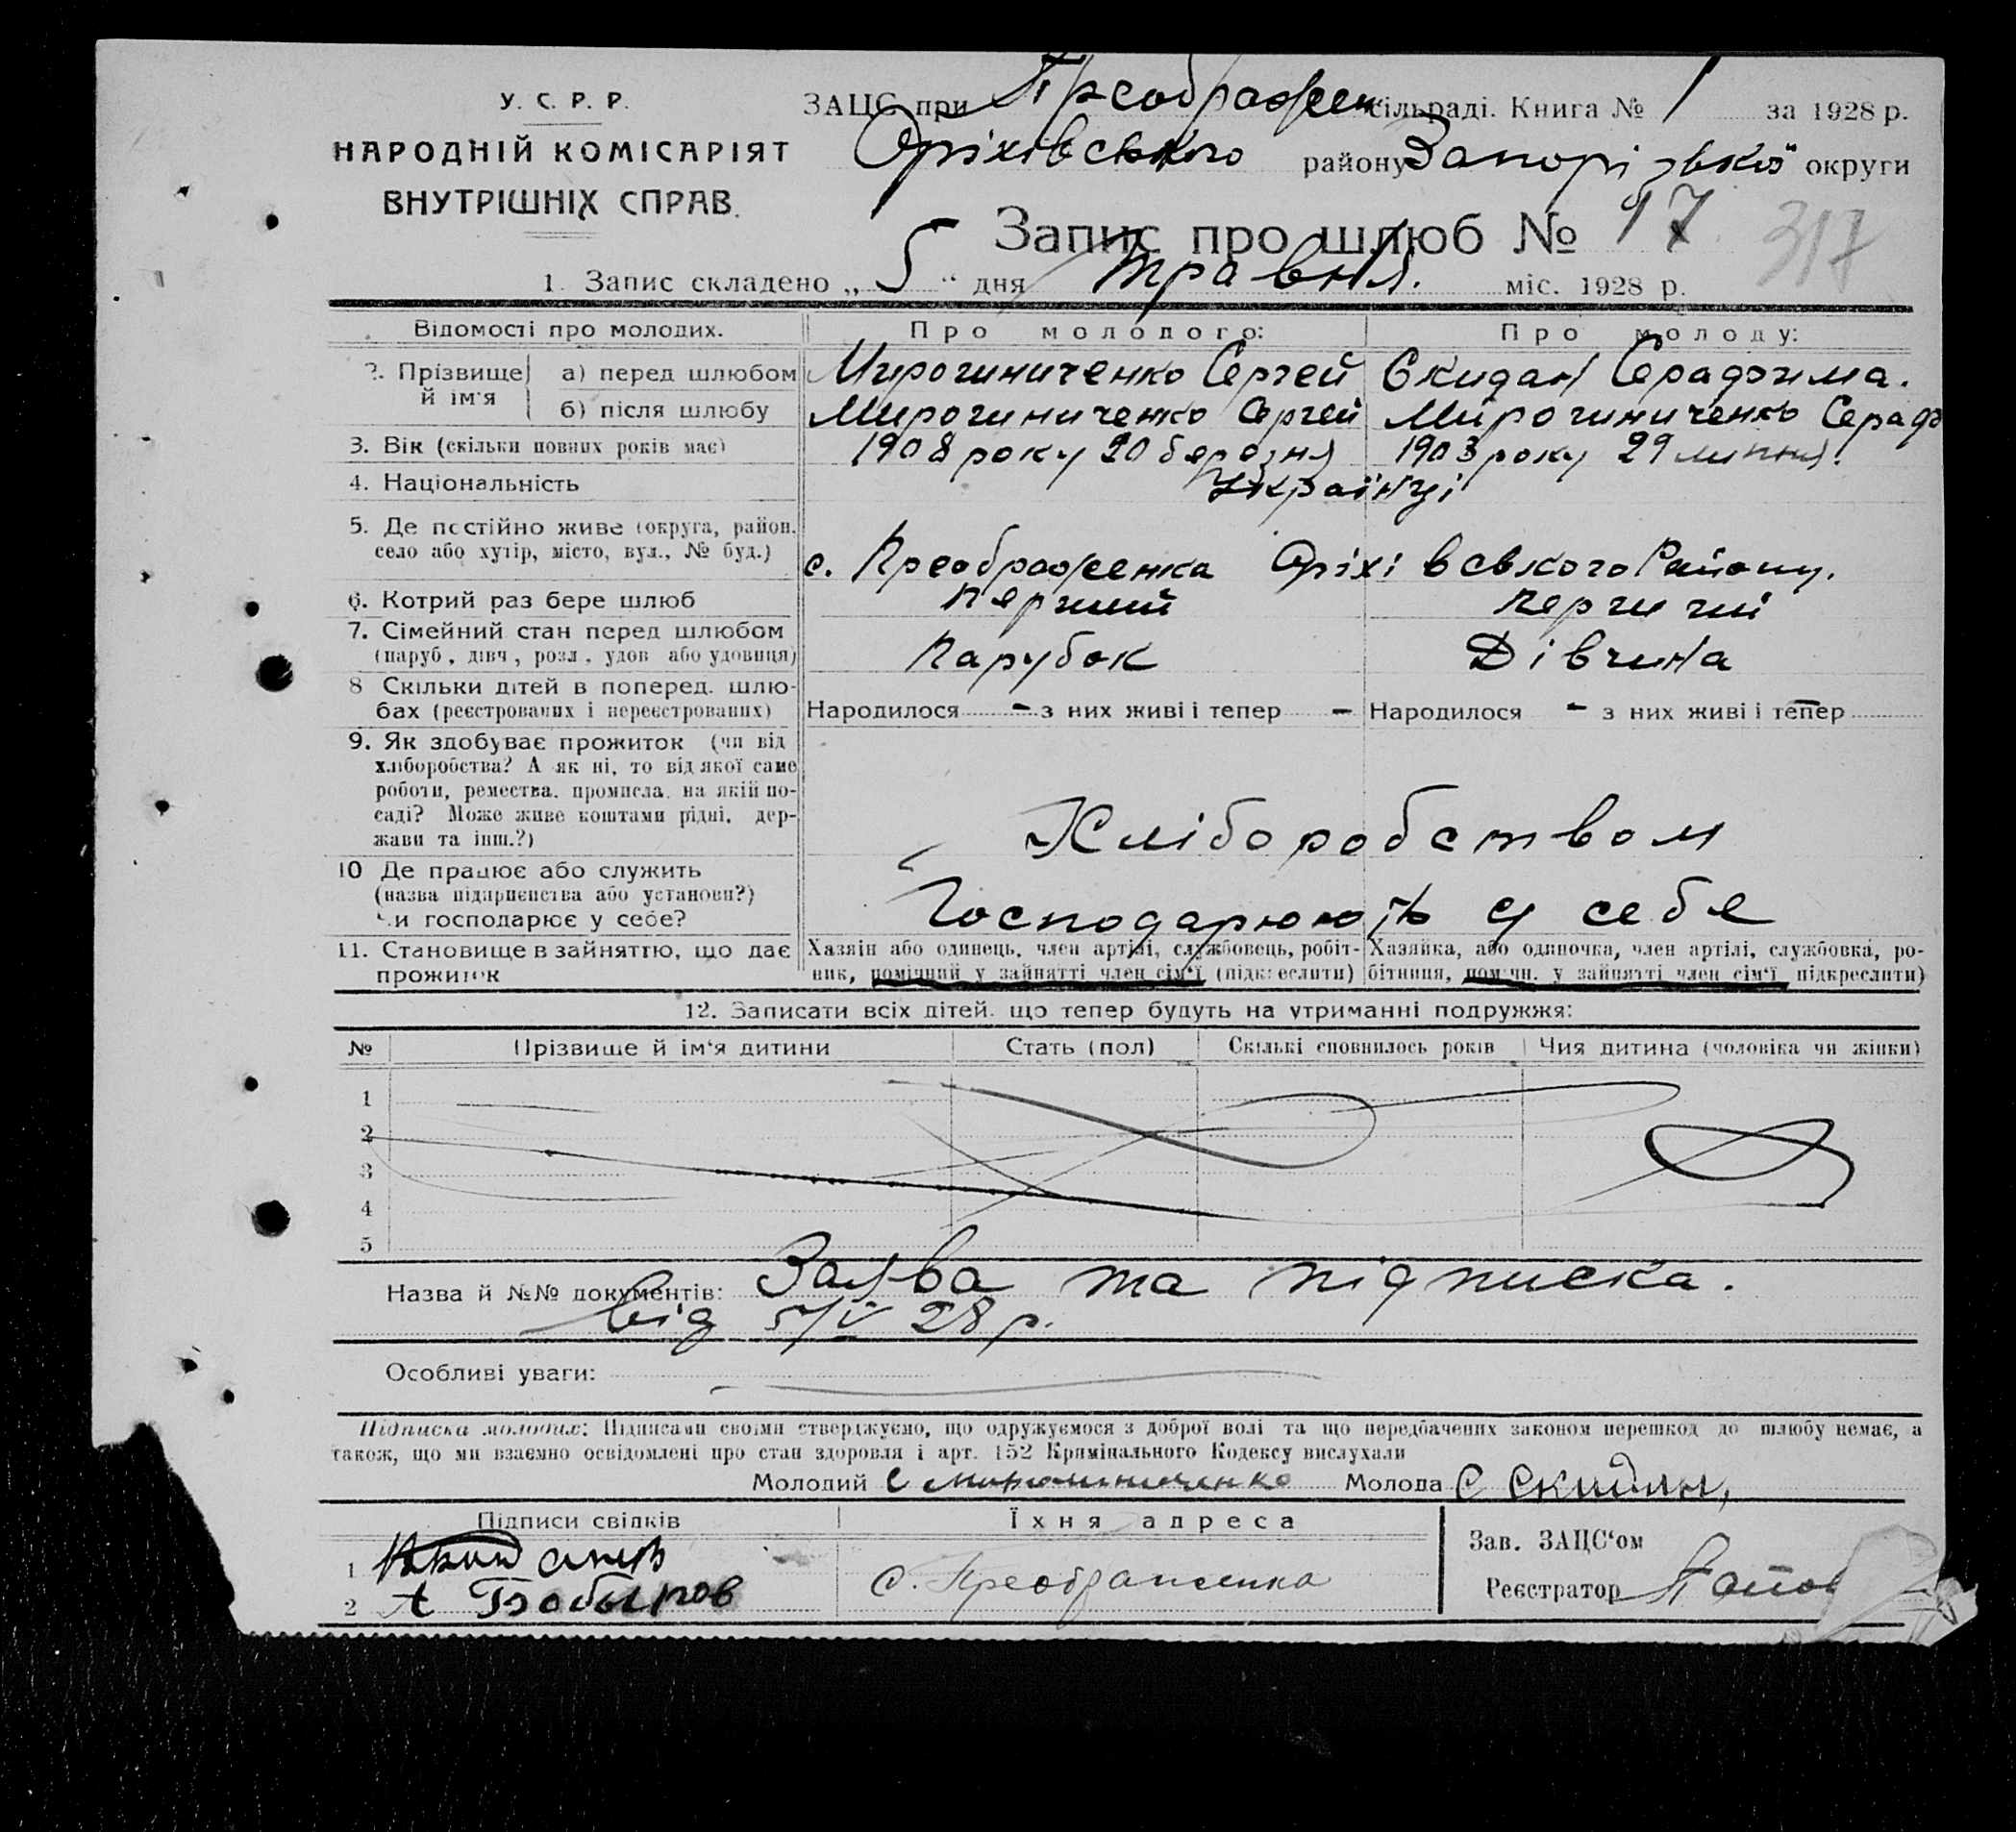 У. С. Р. Р.
НАРОДНІЙ КОМІСАРІЯТ
ВНУТРІШНІХ СПРАВ.
ЗАЦС при Преображен сільраді. Книга № 1 за 1928 р.
Оріхівського району Запорізької округи
Запис про шлюб № 17
317
1. Запис складено „ 5 “ дня травня. міс. 1928 р.
Відомості про молодих. Про молодого: Про молоду:
2. Прізвище й ім'я а) перед шлюбом Мирошниченко Сергей Скидан Серафима.
б) після шлюбу Мирошниченко Сергей Мирошниченко Сераф
3. Вік (скільки повних років має) 1908 року 20 березня 1903 року 29 липня.
4. Національність Українці
5. Де постійно живе (округа, район, село або хутір, місто, вул., № буд.) с. Преображенка Оріхівського Району.
6. Котрий раз бере шлюб перший перший
7. Сімейний стан перед шлюбом Парубок Дівчина
(паруб., дівч., розл., удов. або удовиця)
8 Скільки дітей в поперед. шлю-
бах (реєстрованих і нереєстрованих) Народилося - з них живі і тепер - Народилося - з них живі і тепер -
9. Як здобуває прожиток (чи від
хліборобства? А як ні, то від якої саме
роботи, ремества, промисла, на якій по-
саді? Може живе коштами рідні, дер-
жави та інш.?) Хліборобством
10 Де працює або служить
(назва підприємства або установи?)
Чи господарює у себе? Господарюють у себе
11. Становище в зайняттю, що дає
прожиток
Хазяїн або одинець, член артілі, службовець, робіт-
ник, помічний у зайнятті член сім'ї (підкреслити)
Хазяйка, або одиночка, член артілі, службовка, ро-
бітниця, помічн. у зайнятті член сім'ї підкреслити)
12. Записати всіх дітей, що тепер будуть на утриманні подружжя:
№ Прізвище й ім'я дитини Стать (пол) Скількі сповнилось років Чия дитина (чоловіка чи жінки)
1
2
3
4
5
Назва й №№ документів: Заява та підписка.
від 5/V 28 р.
Особливі уваги:
Підписка молодих: Підписами своїми стверджуємо, що одружуємося з доброї волі та що передбачених законом перешкод до шлюбу немає, а
також, що ми взаємно освідомлені про стан здоровля і арт. 152 Кримінального Кодексу вислухали
Молодий С Мирошниченко Молода С Скидан,
Підписи свідків Їхня адреса
1
2 А Бобыров
с. Преображенка
Зав. ЗАЦС'ом
Реєстратор